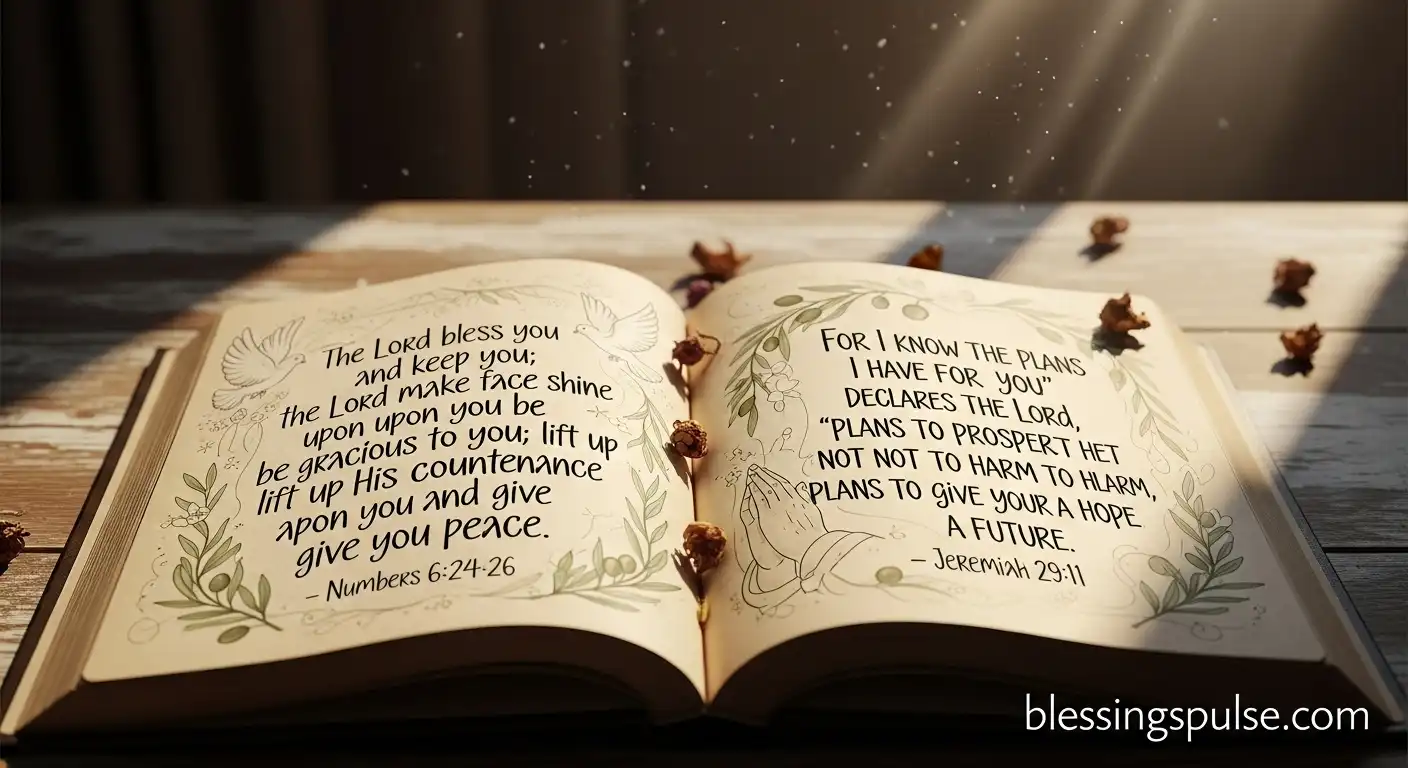 The Lord bless you
and keep you;
the Lord make face shine
upon upon you be
be gracious to you; lift up
lift up His countenance
apon you and give
give you peace.
– Numbers 6:24-26
For I know the plans
I have for you”
declares the Lord,
“plans to prospert het
not not to harm to hlarm,
plans to give your a hope
a future.
– Jeremiah 29:11
blessingspulse.com